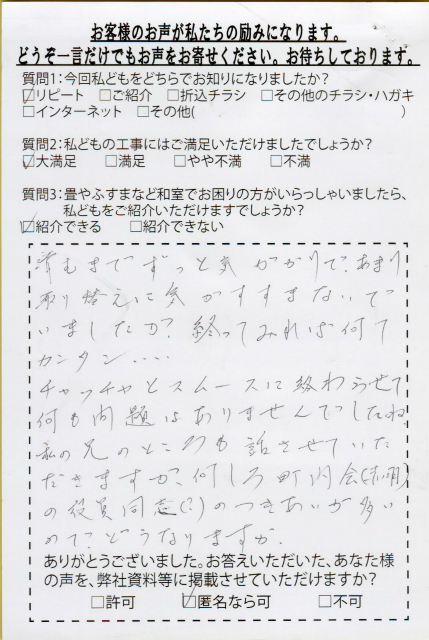 お客様のお声が私たちの励みになります。
どうぞ一言だけでもお声をお寄せください。お待ちしております。
質問1：今回私どもをどちらでお知りになりましたか？
☑リピート □ご紹介 □折込チラシ □その他のチラシ・ハガキ
□インターネット □その他( )
質問2：私どもの工事にはご満足いただけましたでしょうか？
☑大満足 □満足 □やや不満 □不満
質問3：畳やふすまなど和室でお困りの方がいらっしゃいましたら、
私どもをご紹介いただけますでしょうか？
☑紹介できる □紹介できない
済むまでずっと気がかりで、あまり
取り替えに気がすすまないで
いましたが、終ってみれば何て
カンタン‥‥
チャッチャとスムースに終わらせて
何も問題はありませんでしたね
私の兄のところも話させていた
だきますが、何しろ町内会
の役員同志(?)のつきあいが多い
ので、どうなりますか。
ありがとうございました。お答えいただいた、あなた様
の声を、弊社資料等に掲載させていただけますか？
□許可 ☑匿名なら可 □不可